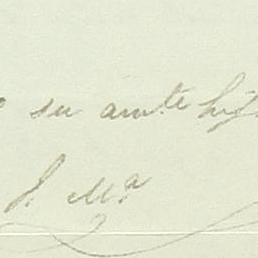 su amte hij
J. Mª